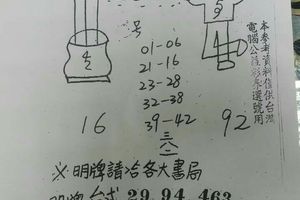 本參考資料僅供台灣
電腦公益彩券選號用
號
5
2
4
01-06
21-16
23-28
32-38
39-42
三
六
16
92
※明牌請洽各大書局
台式 29.94.463